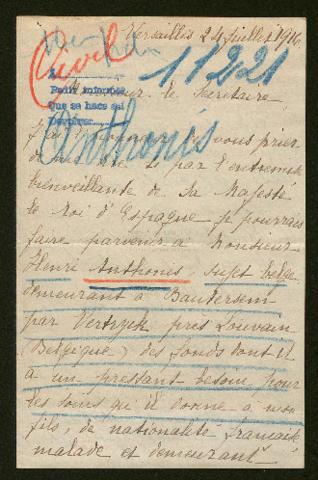 Versailles 24 Juillet 1916.
Civil
11221
Pedir informes
Que se hace así
Monsieur le Secrétaire,
Anthonis
J'ai l'honneur de vous prier
de me dire si par l'entremise
bienveillante de Sa Majesté
le Roi d'Espagne je pourrais
faire parvenir à Monsieur
Henri Anthonis, sujet belge
demeurant à Bautersem
par Vertryck près Louvain
(Belgique) des fonds dont il
a un pressant besoin pour
les soins qu'il donne à mon
fils, de nationalité française,
malade et demeurant